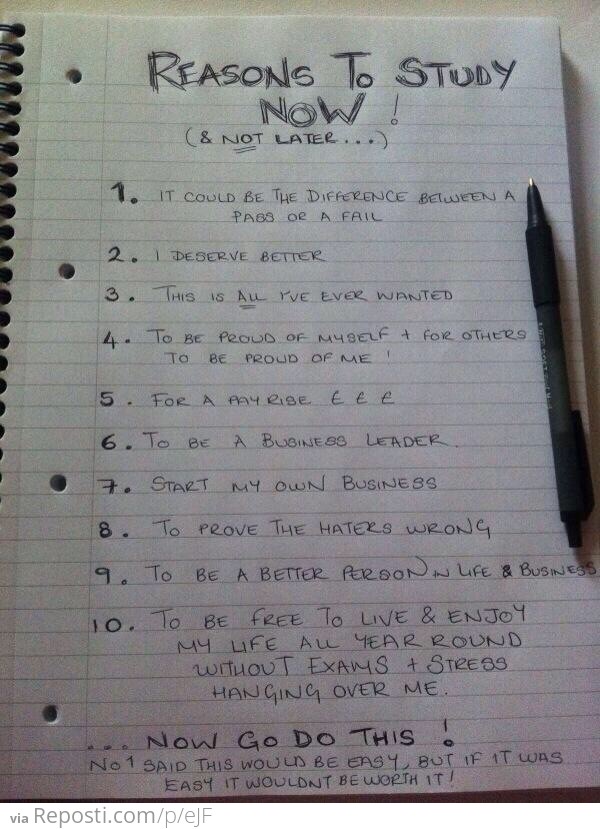 REASONS TO STUDY
NOW !
(& NOT LATER...)
1. IT COULD BE THE DIFFERENCE BETWEEN A
PASS OR A FAIL
2. I DESERVE BETTER
3. THIS IS ALL I'VE EVER WANTED
4. TO BE PROUD OF MYSELF + FOR OTHERS
TO BE PROUD OF ME !
5. FOR A PAY RISE £ £ £
6. TO BE A BUSINESS LEADER.
7. START MY OWN BUSINESS
8. TO PROVE THE HATERS WRONG
9. TO BE A BETTER PERSON IN LIFE & BUSINESS
10. TO BE FREE TO LIVE & ENJOY
MY LIFE ALL YEAR ROUND
WITHOUT EXAMS + STRESS
HANGING OVER ME.
... NOW GO DO THIS !
NO1 SAID THIS WOULD BE EASY, BUT IF IT WAS
EASY IT WOULDNT BE WORTH IT!
via Reposti.com/p/eJF